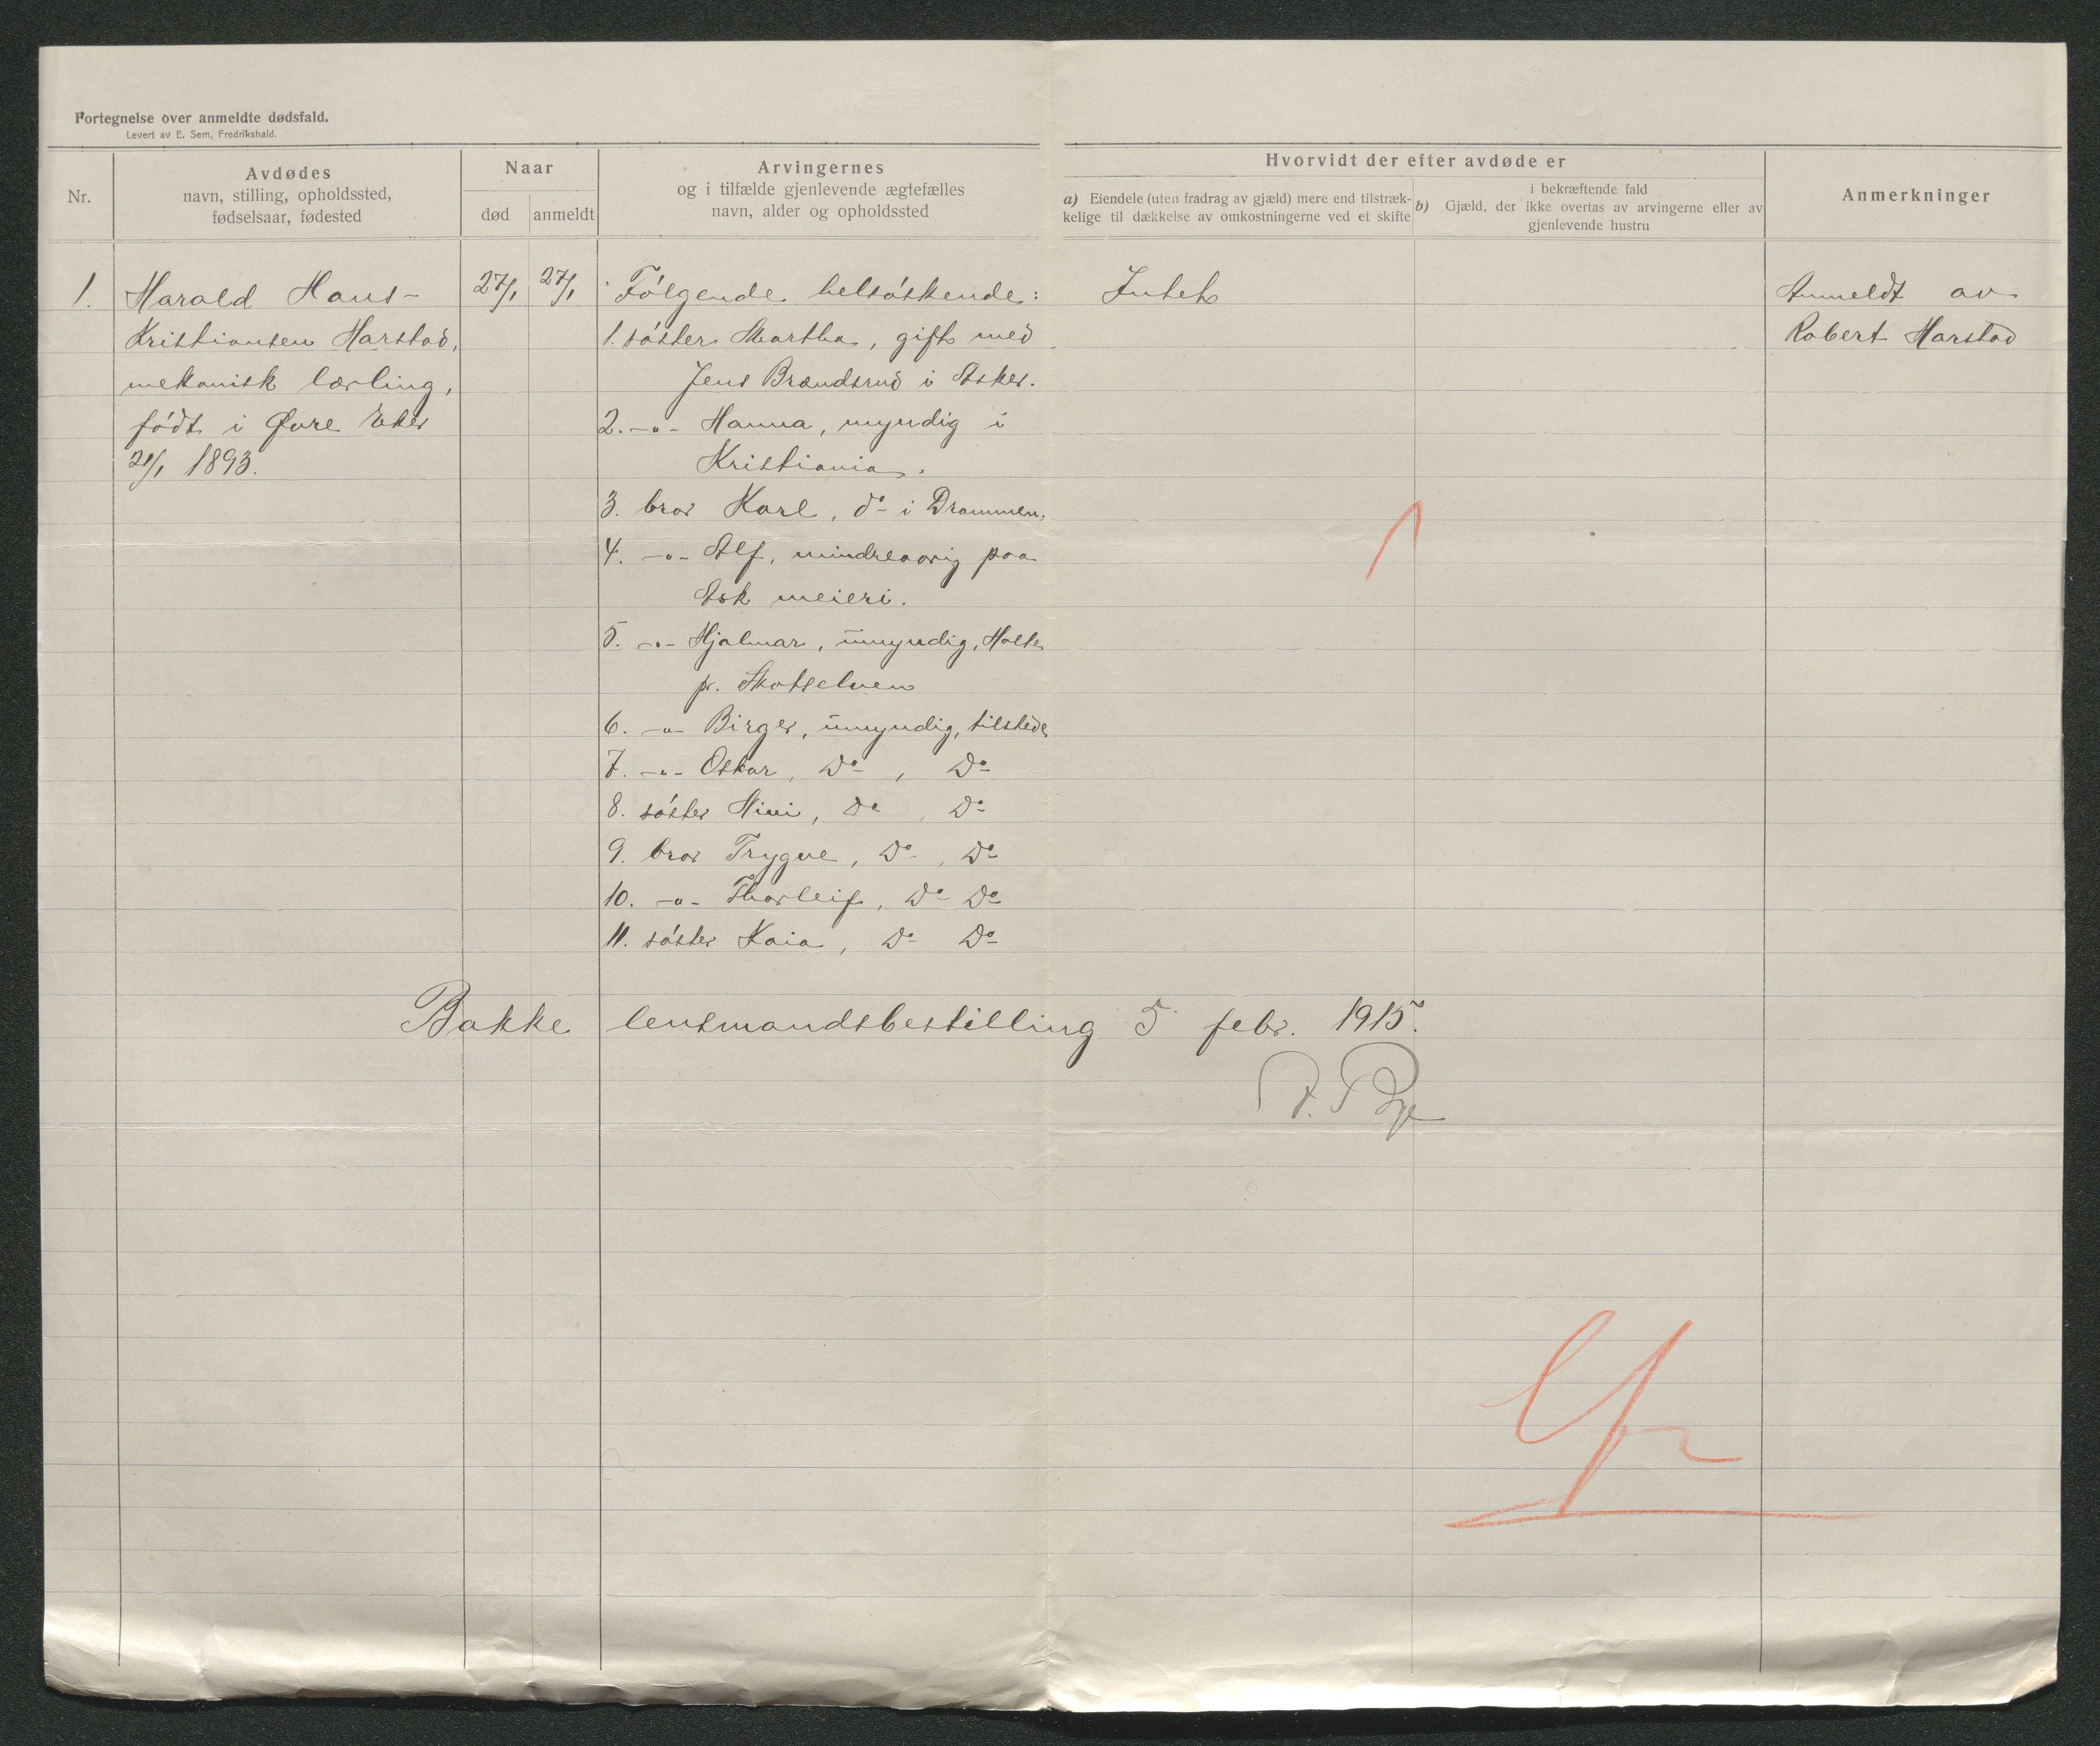 Fortegnelse over anmeldte dødsfald.
Levert av E. Sem, Fredrikshald.
Nr.
Avdødes
navn, stilling, opholdssted,
fødselsaar, fødested
Naar
død
anmeldt
Arvingernes
og i tilfælde gjenlevende ægtefælles
navn, alder og opholdssted
Hvorvidt der efter avdøde er
a) Eiendele (uten fradrag av gjæld) mere end tilstræk-
kelige til dækkelse av omkostningerne ved et skifte
i bekræftende fald
b) Gjæld, der ikke overtas av arvingerne eller av
gjenlevende hustru
Anmerkninger
1.
Harald Hans-
Kristiansen Harstad,
mekanisk lærling,
født i Øvre Eker
21/1 1893.
27/1
27/1
Følgende helsøskende:
1. søster Martha, gift med
Jens Brændsrud i Asker.
2. -"- Hanna, myndig i
Kristiania.
3. bror Karl, do i Drammen.
4. -"- Alf, mindreaarig paa
Ask meieri.
5. -"- Hjalmar, umyndig, Holte
pr. Skotselven
6. -"- Birger, umyndig, tilstede
7. -"- Oskar, Do, Do
8. søster Nini, Do, Do
9. bror Trygve, Do, Do
10. -"- Thorleif, Do Do
11. søster Kaia, Do Do
Intet
Anmeldt av
Robert Harstad
Bakke lensmandsbestilling 5 febr. 1915.